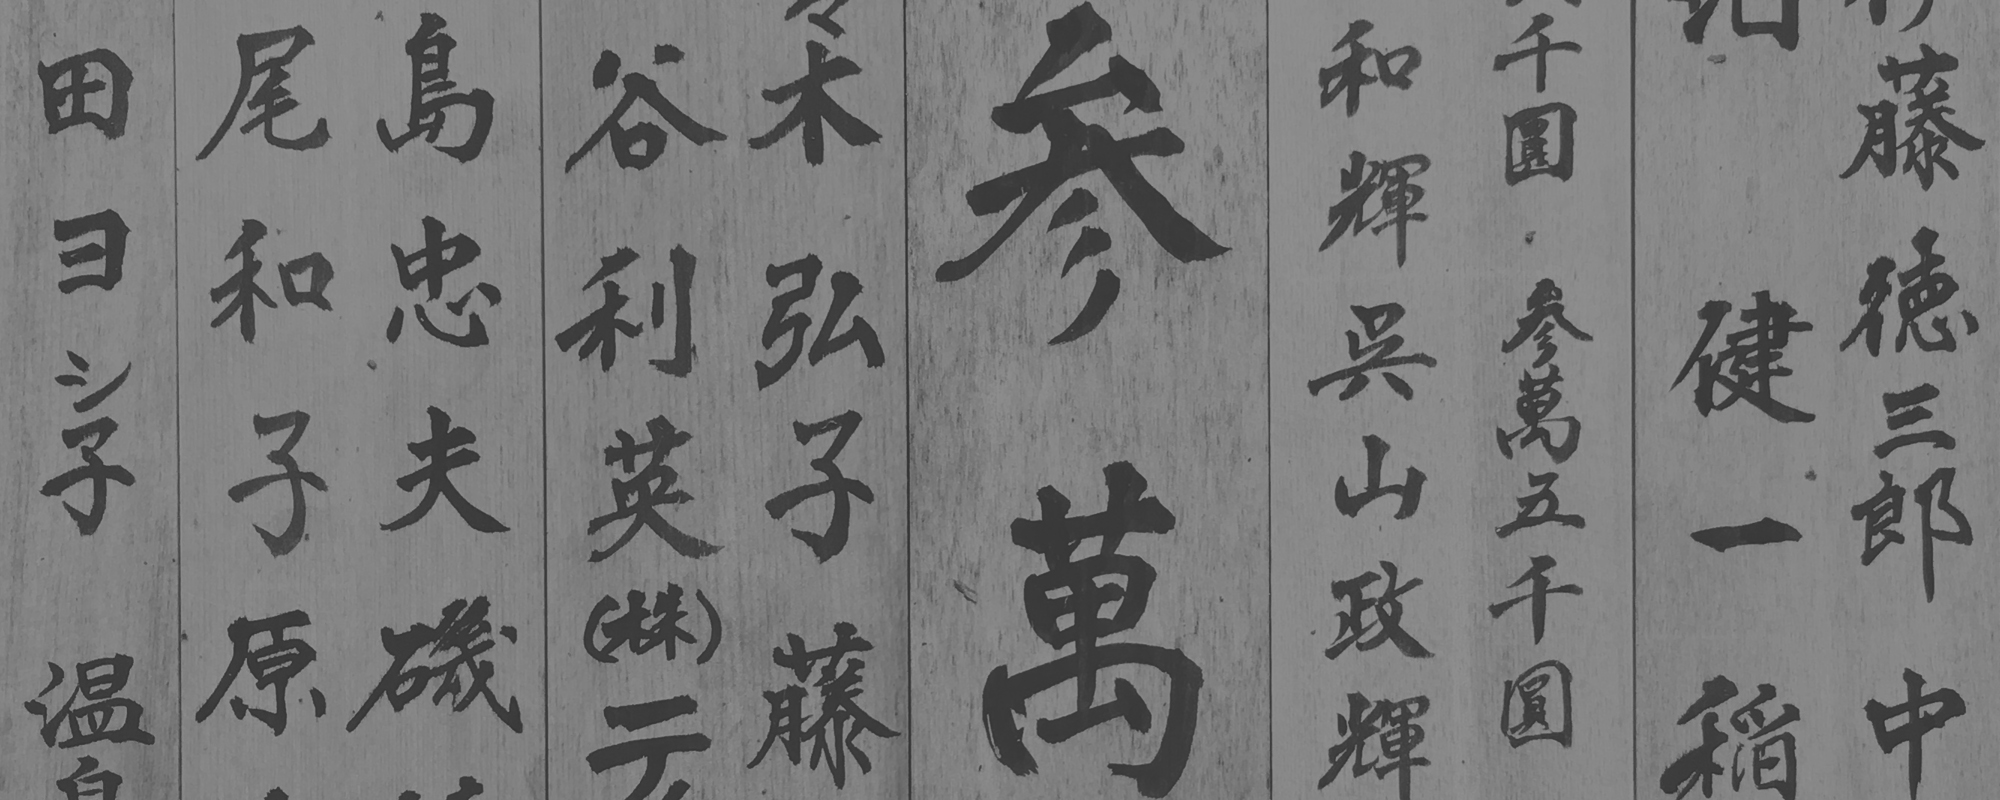 藤徳三郎 中
健一 稲
千圓 参萬五千圓
和輝 呉山政輝
参萬
々木弘子 藤
谷利英 (株)テ
島忠夫 磯
尾和子 原
田ヨシ子 温